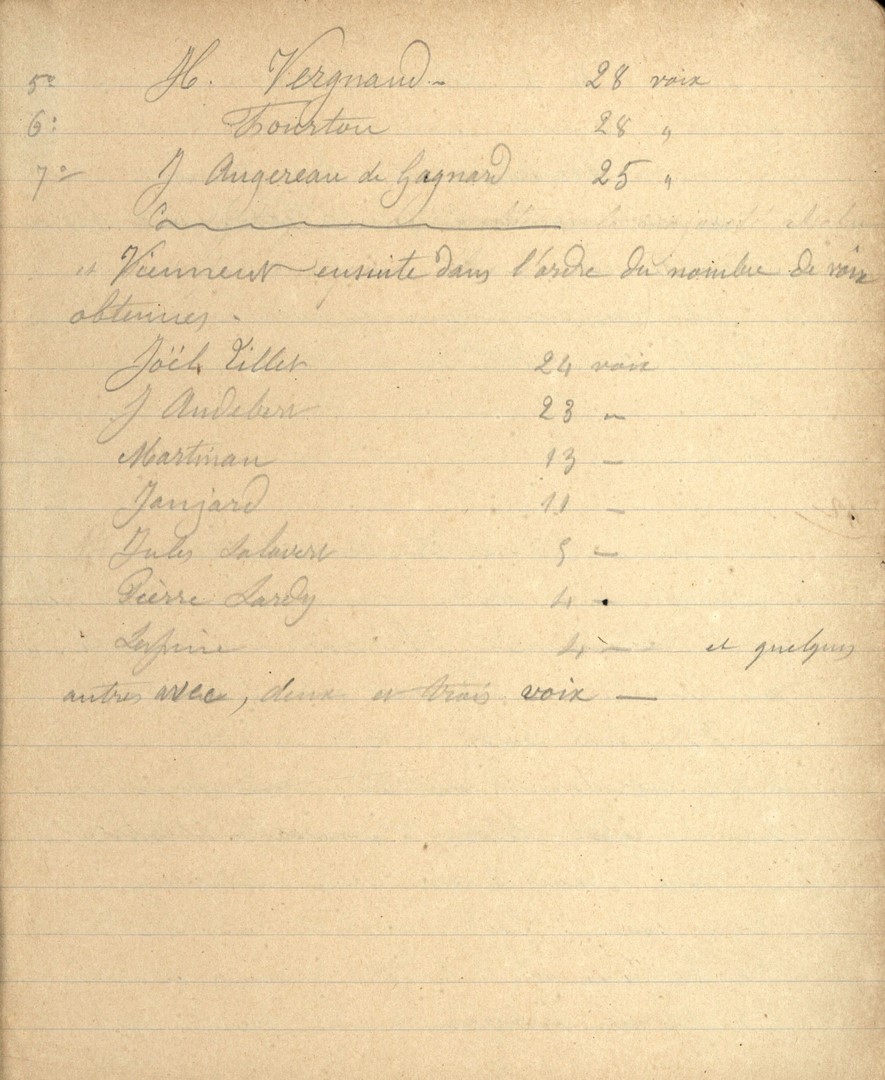 5° H. Vergnaud - 28 voix
6° Fourton 28 "
7° J Augereau de Gagnard 25 "
et Viennent ensuite dans l'ordre du nombre de voix
obtenues -
Joël Tillet 24 voix
J Audebert 23 —
Martinau 13 —
Janjard 11 —
Jules Salavert 5 —
Pierre Lardy 4 —
4 — et quelques
autres avec, deux et trois voix —